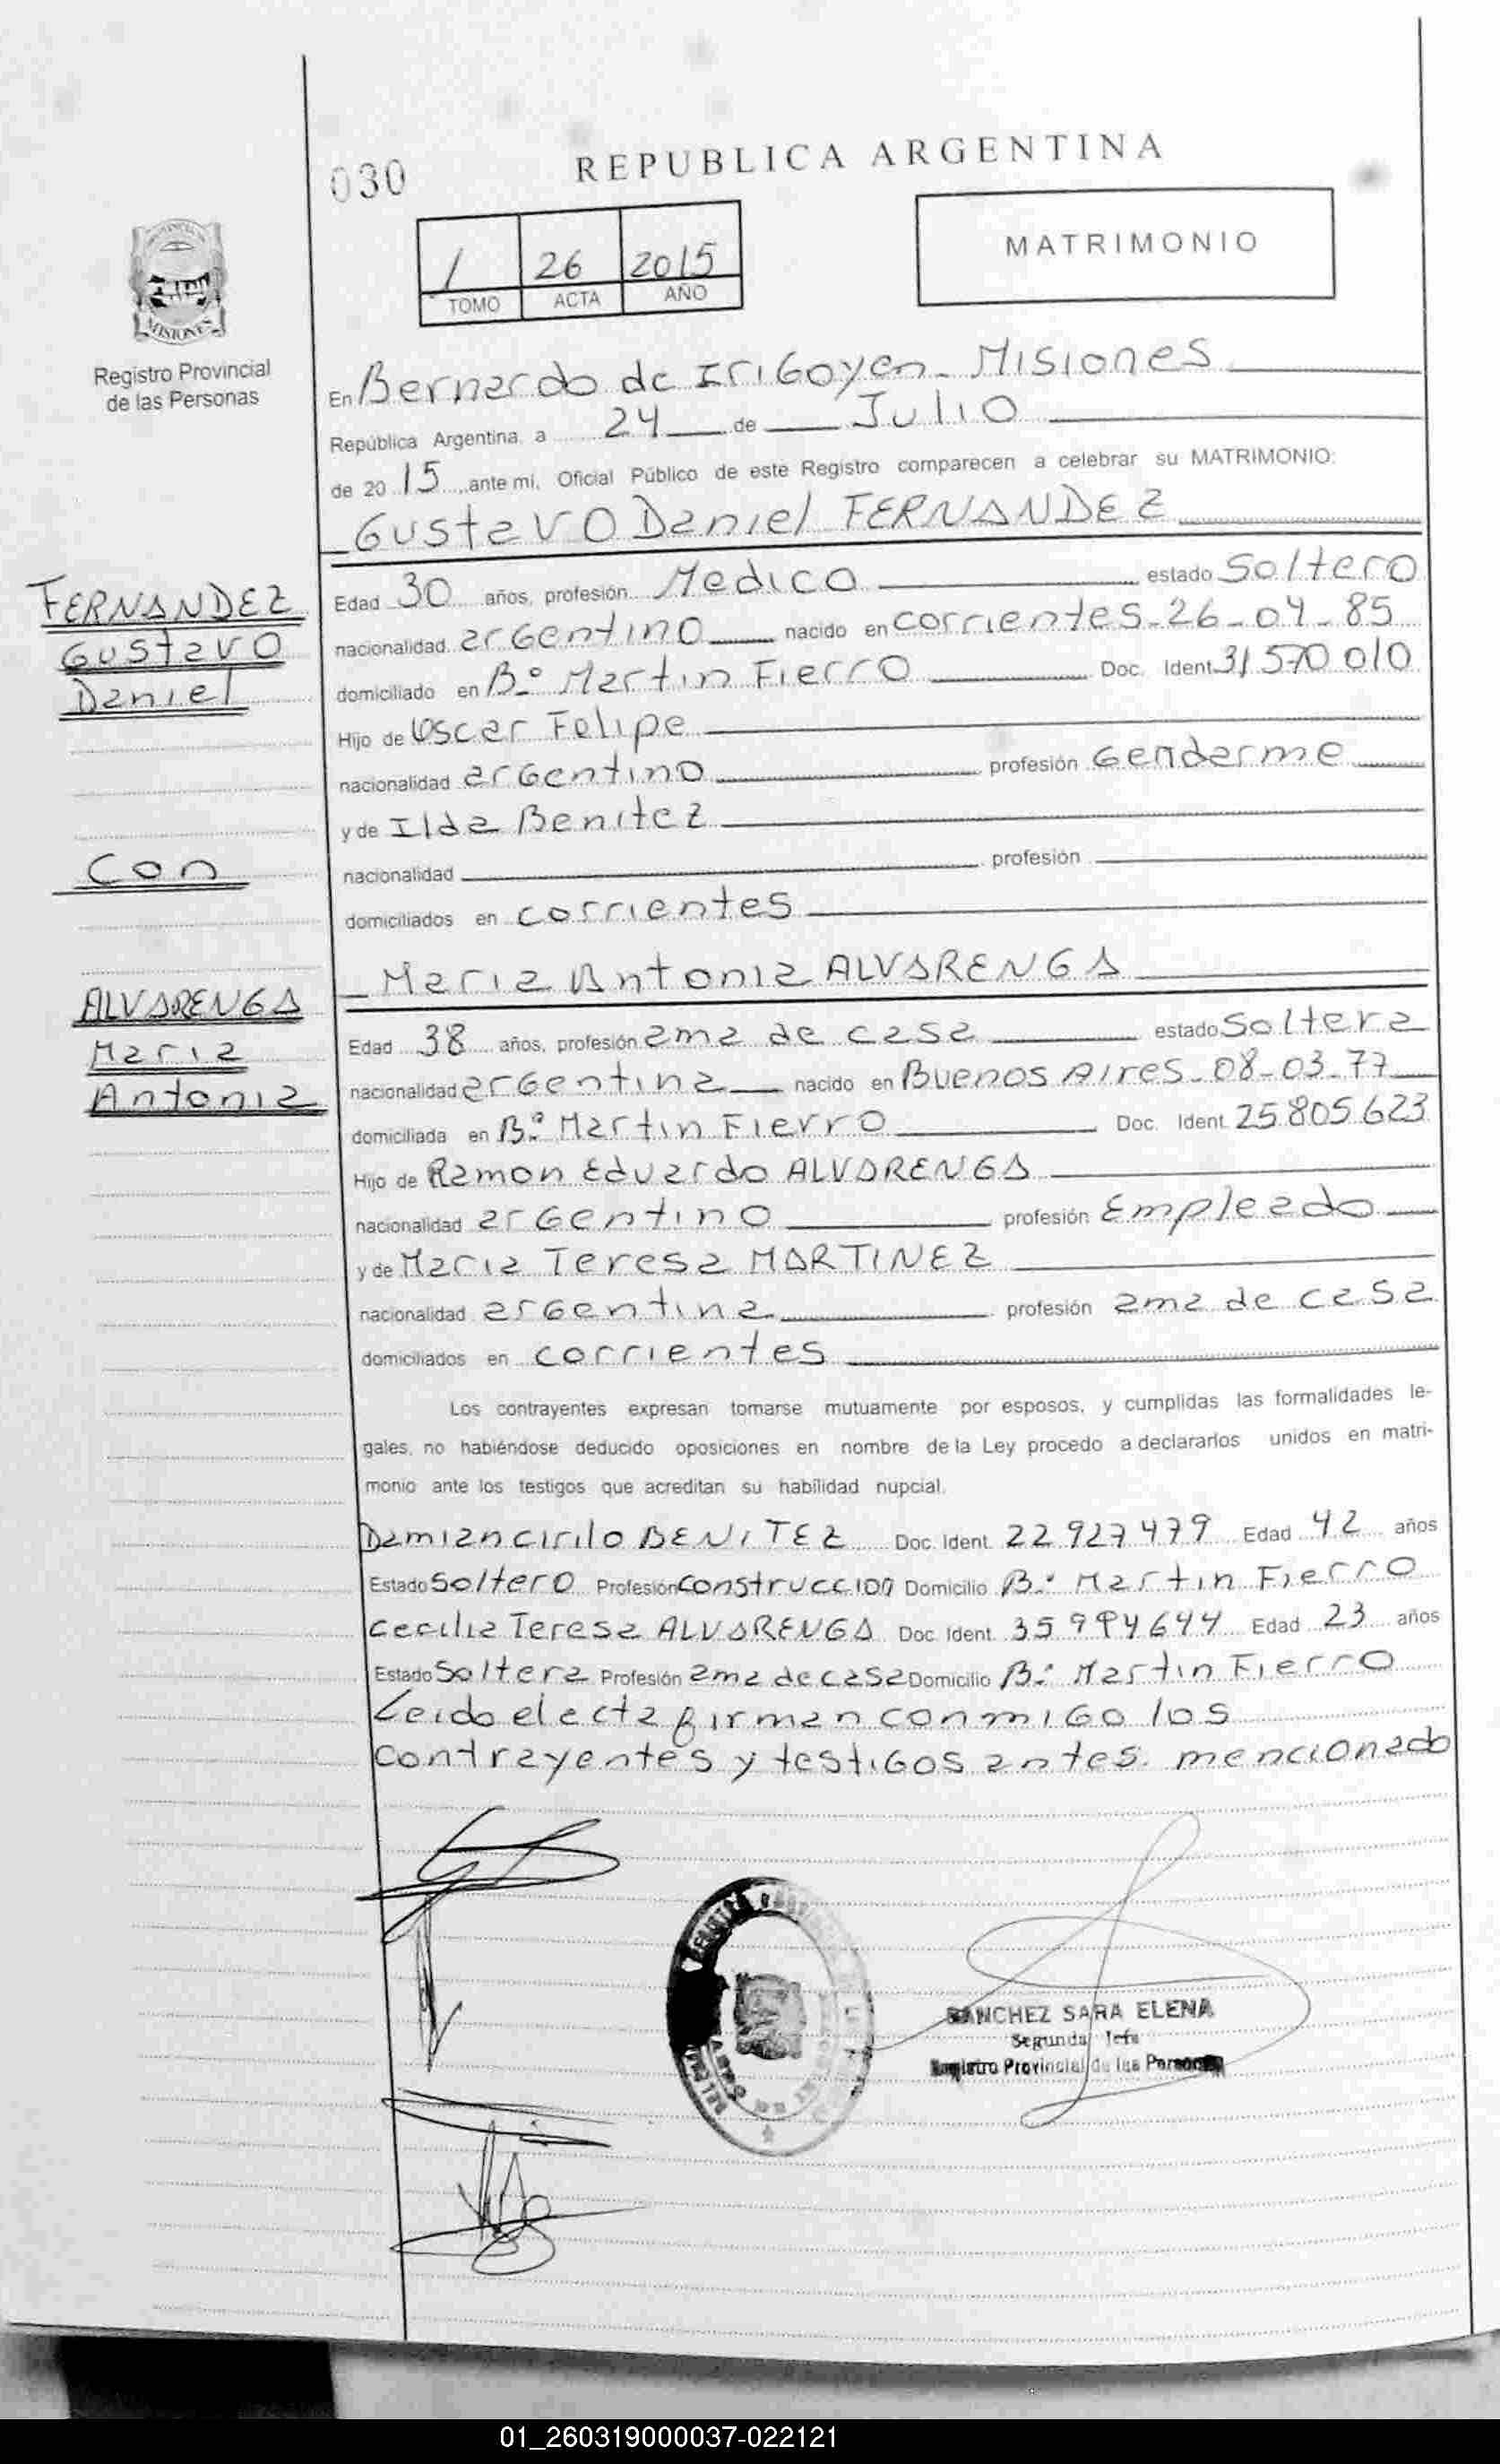 030
REPUBLICA ARGENTINA
1 26 2015
TOMO ACTA AÑO
MATRIMONIO
MISIONES
Registro Provincial
de las Personas
En Bernardo de Irigoyen - Misiones
República Argentina, a 24 de Julio
de 20 15 ante mí, Oficial Público de este Registro comparecen a celebrar su MATRIMONIO:
Gustavo Daniel FERNANDEZ
FERNANDEZ
Gustavo
Daniel
Edad 30 años, profesión Medico estado Soltero
nacionalidad argentino nacido en corrientes - 26 - 04 - 85
domiciliado en B.º Martin Fierro Doc. Ident. 31 570 010
Hijo de Oscar Felipe
nacionalidad argentino profesión Gendarme
y de Ilda Benitez
Con
nacionalidad profesión
domiciliados en corrientes
Maria Antonia ALVARENGA
ALVARENGA
Maria
Antonia
Edad 38 años, profesión ama de casa estado Soltera
nacionalidad argentina nacido en Buenos Aires - 08 - 03 - 77
domiciliada en B.º Martin Fierro Doc. Ident. 25.805.623
Hijo de Ramon Eduardo ALVARENGA
nacionalidad argentino profesión Empleado
y de Maria Teresa MARTINEZ
nacionalidad argentina profesión ama de casa
domiciliados en corrientes
Los contrayentes expresan tomarse mutuamente por esposos, y cumplidas las formalidades le-
gales, no habiéndose deducido oposiciones en nombre de la Ley procedo a declararlos unidos en matri-
monio ante los testigos que acreditan su habilidad nupcial.
Damian cirilo BENITEZ Doc. Ident. 22 927 479 Edad 42 años
Estado Soltero Profesión construccion Domicilio B.º Martin Fierro
Cecilia Teresa ALVARENGA Doc. Ident. 35 994 644 Edad 23 años
Estado Soltera Profesión ama de casa Domicilio B.º Martin Fierro
Leido el acta firman conmigo los
contrayentes y testigos antes mencionado
SANCHEZ SARA ELENA
Segunda Jefa
Registro Provincial de las Personas
01_260319000037-022121